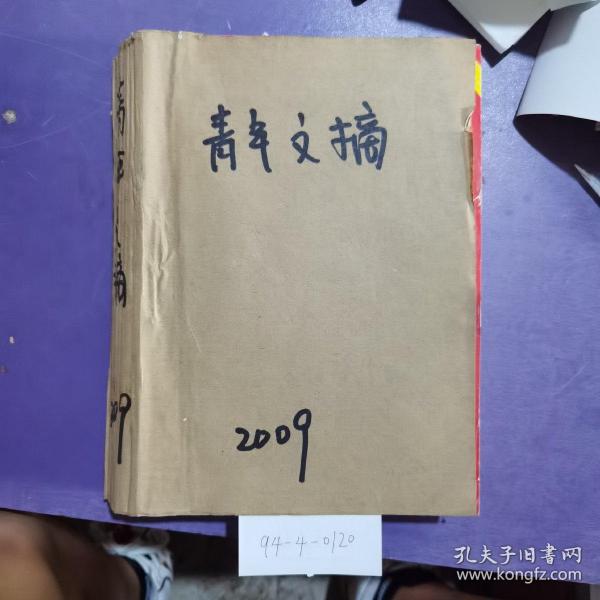 青年文摘
2009
青年文摘
2009
94-4-0120
孔夫子旧书网
www.kongfz.com